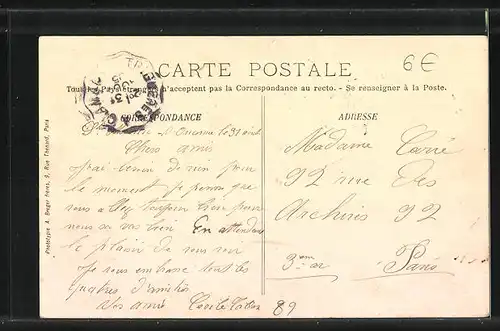 6€
CARTE POSTALE
Tous les Pays étrangers n'acceptent pas la Correspondance au recto. - Se renseigner à la Poste.
CORRESPONDANCE
le 31 août
Chers amis
J'ai besoin de rien pour
le moment je pense que
vous allez toujours bien pour
nous sa va bien En attendant
le plaisir de vous voir
je vous embrasse tout les
quatres d'amitiés
Vos amis Cecile
89
ADRESSE
Madame Carré
92 rue des
Archives 92
3em ar Paris
Phototypie A. Breger Frères, 9, Rue Thénard, Paris